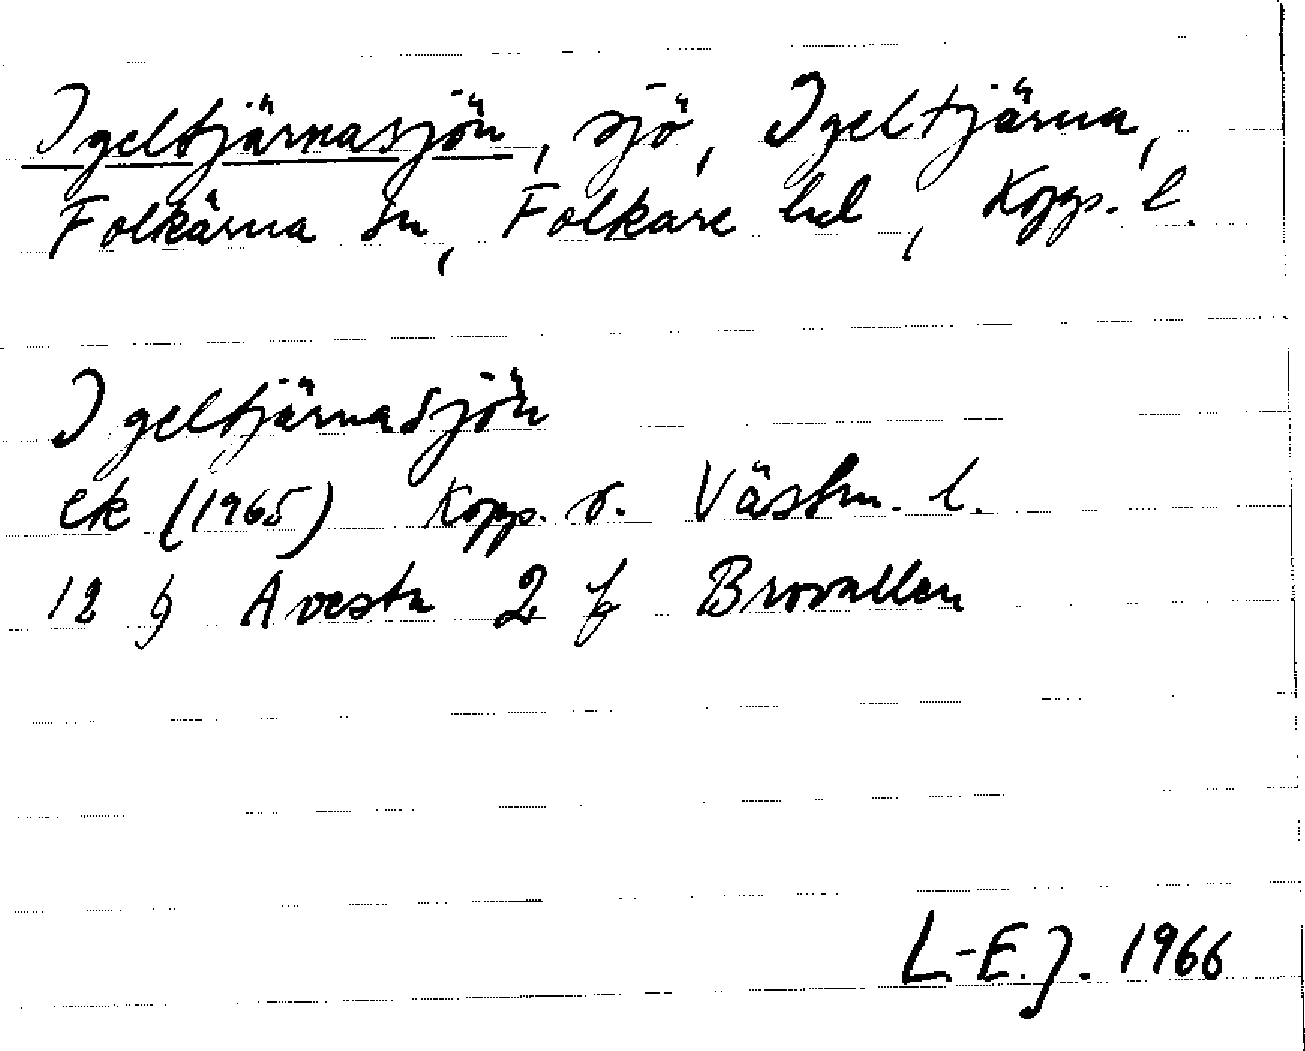 Igeltjärnasjön, sjö, Igeltjärna,
Folkärna sn, Folkare hd, Kopp. l.
Igeltjärnasjön
ek (1965) Kopp. o. Västm. l.
12 G Avesta 2 f Brovallen
L-E.J. 1966